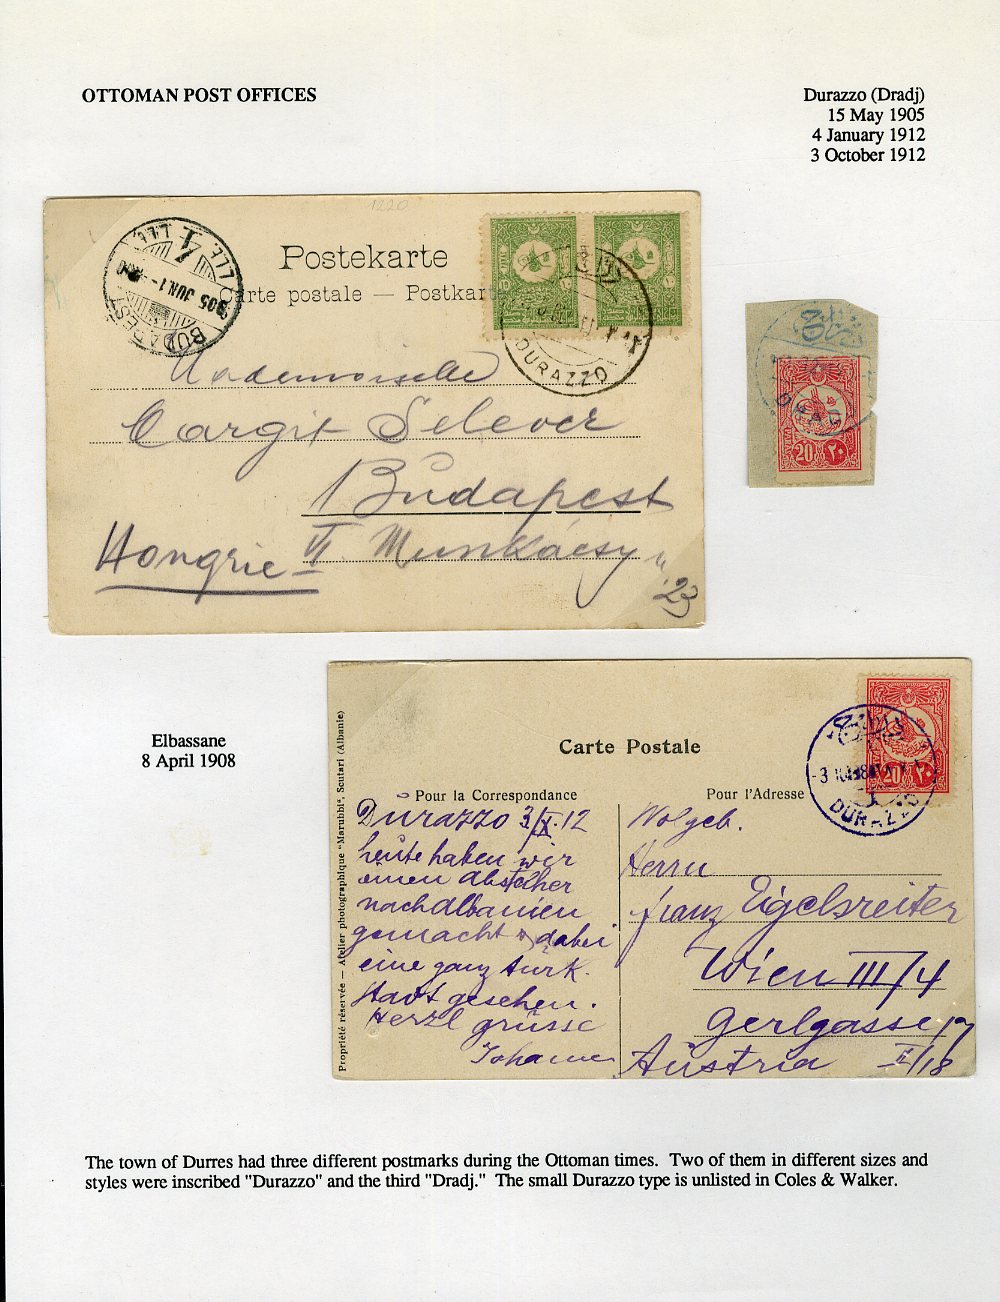 OTTOMAN POST OFFICES
Durazzo (Dradj)
15 May 1905
4 January 1912
3 October 1912
1220
Postekarte
Carte postale — Postkarte
BUDAPEST
905 JUN. 1
DURAZZO
Mademoiselle
Margit Selever
Budapest
Hongrie VI. Munkácsy u
23
20 ٢٠
Elbassane
8 April 1908
Carte Postale
Pour la Correspondance
Pour l'Adresse
Propriété réservée — Atelier photographique "Marubbi", Scutari (Albanie)
DURAZZO
20 ٢٠
Durazzo 3/X. 12
heute haben wir
einen abstecher
nach Albanien
gemacht & dabei
eine ganz türk.
Stadt gesehen.
Herzl grüsse
Wolgeb.
Herrn
Franz Eigelsreiter
Wien III/4
Gerlgasse 17
Austria II/18
The town of Durres had three different postmarks during the Ottoman times.  Two of them in different sizes and
styles were inscribed "Durazzo" and the third "Dradj."  The small Durazzo type is unlisted in Coles & Walker.